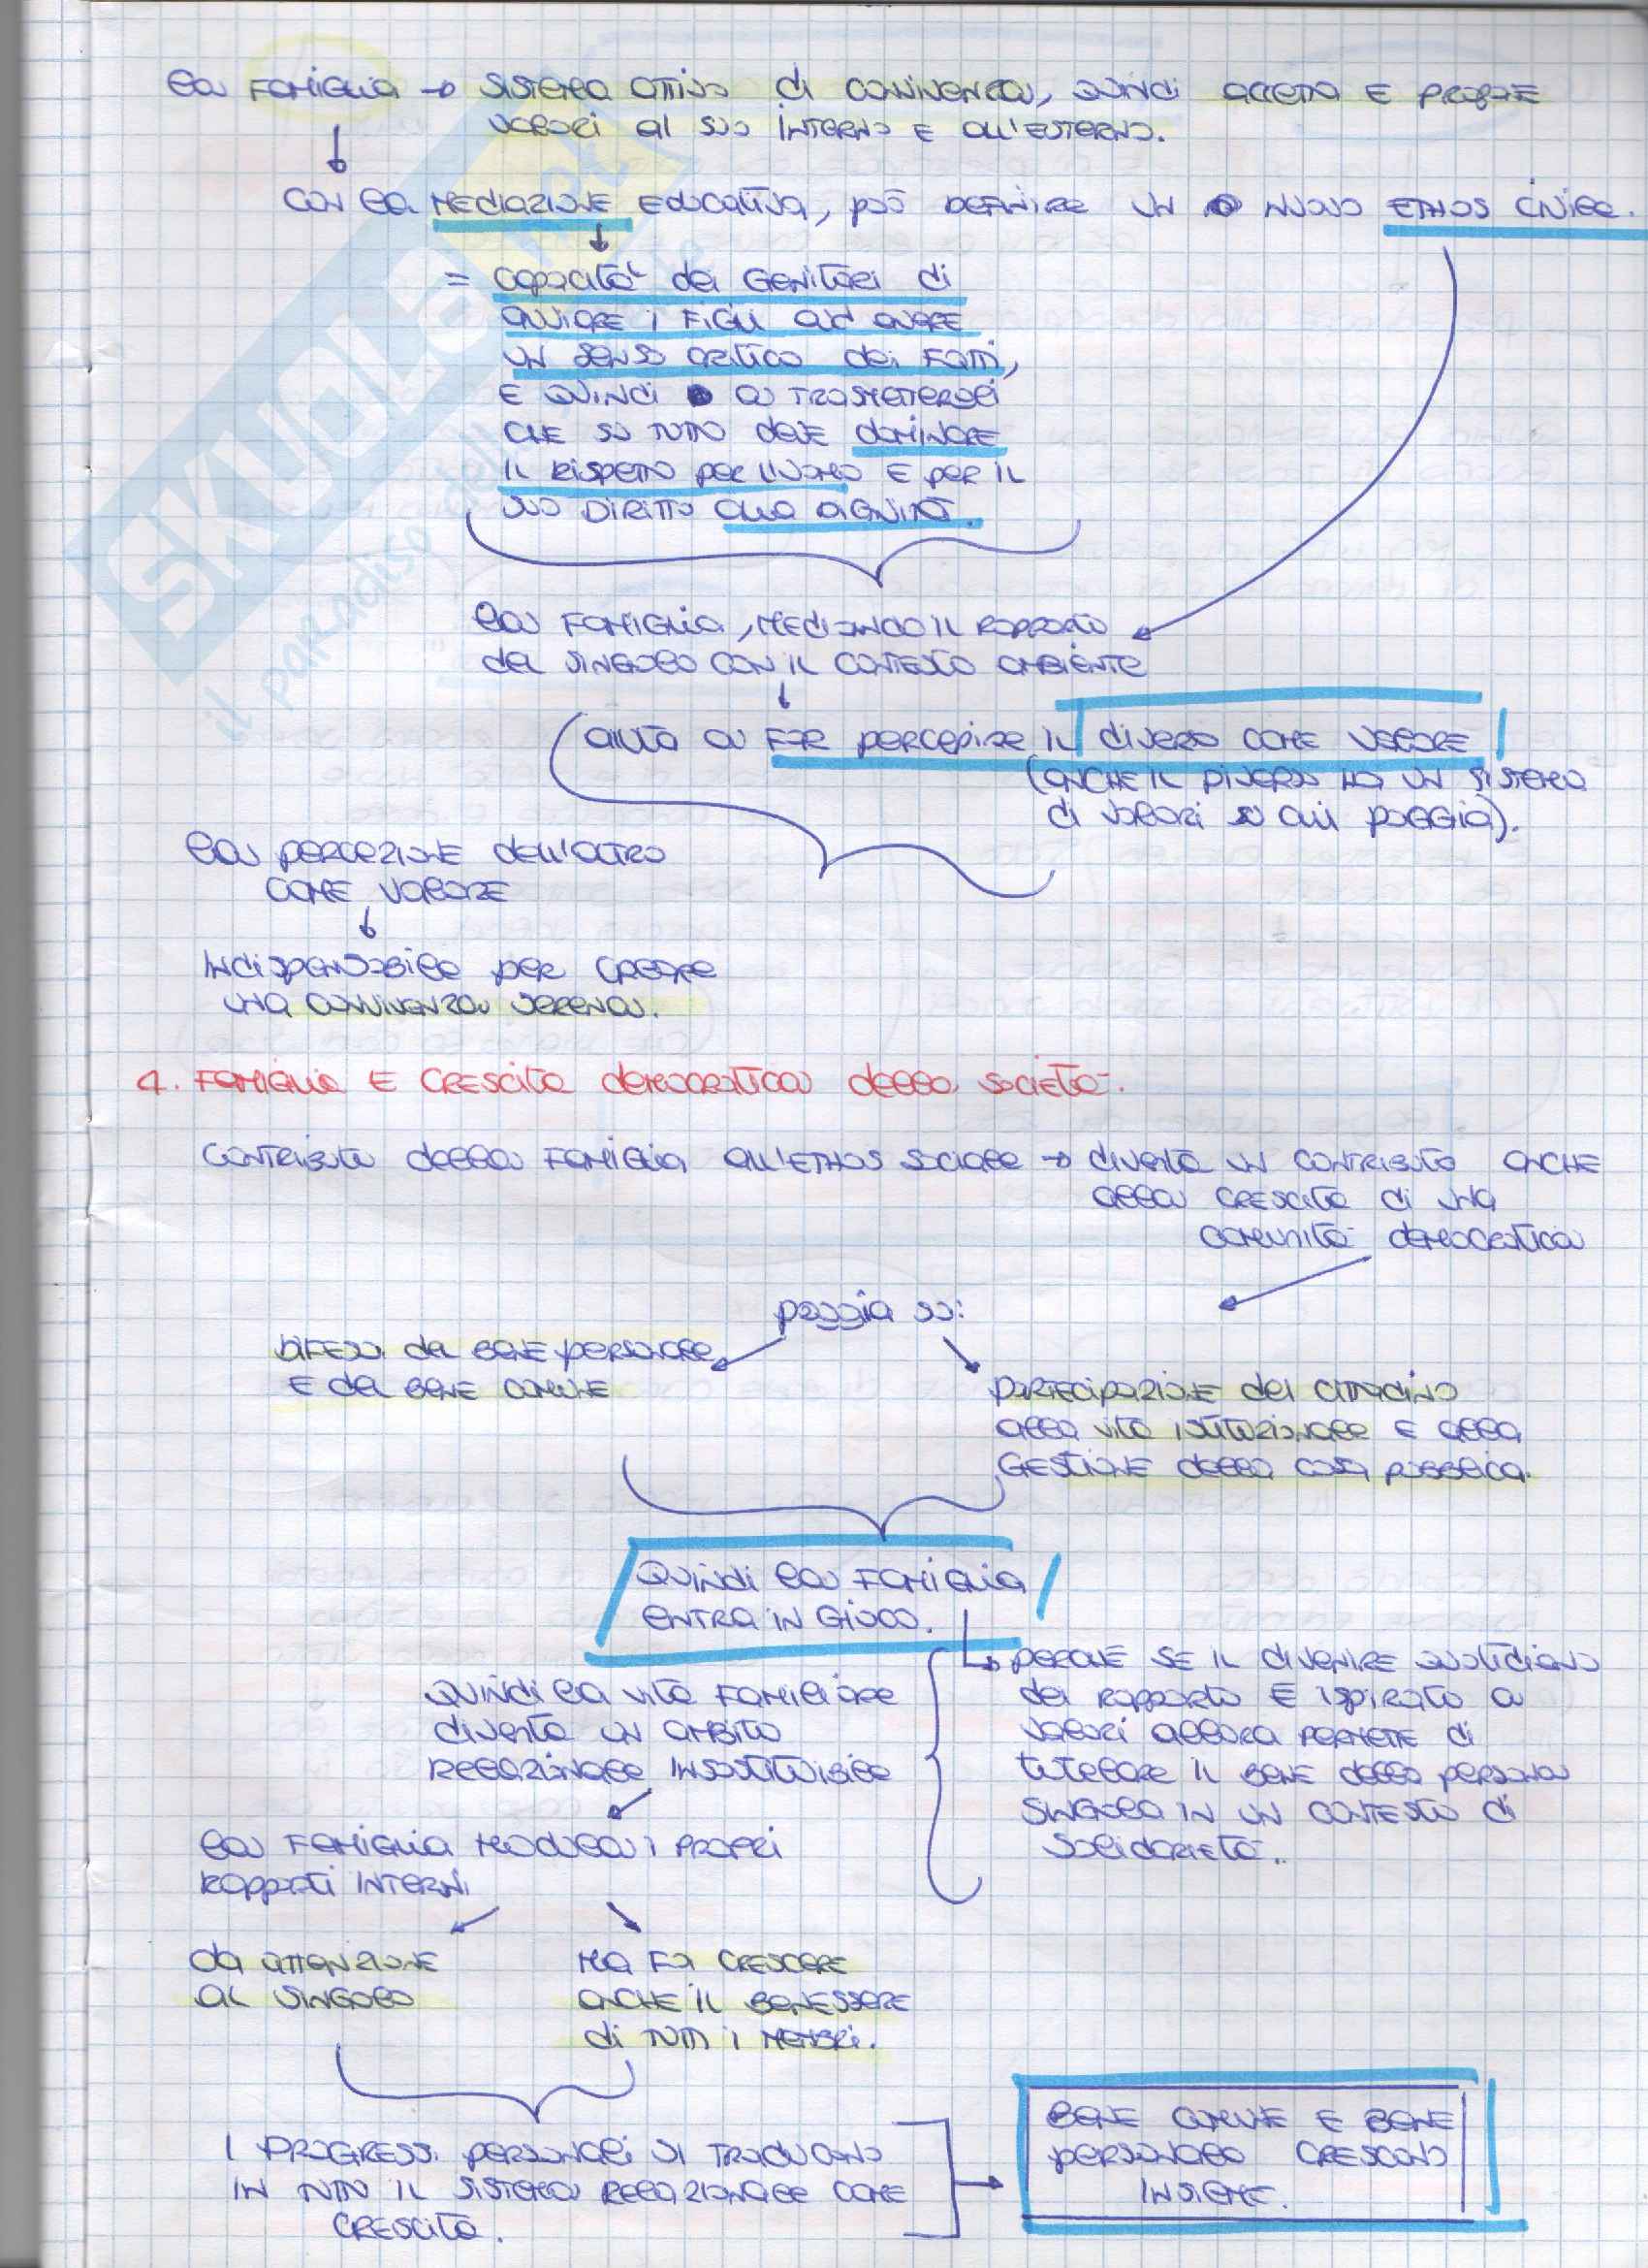 la famiglia → sistema attivo di convivenza, quindi accetta e propone
valori al suo interno e all'esterno.
con la mediazione educativa, può definire un nuovo ethos civile.
= capacità dei genitori di
avviare i figli ad avere
un senso critico dei fatti,
e quindi a trasmettergli
che su tutto deve dominare
il rispetto per l'uomo e per il
suo diritto alla dignità.
la famiglia, mediando il rapporto
del singolo con il contesto ambiente
aiuta a far percepire il diverso come valore
(anche il diverso ha un sistema
di valori su cui poggia).
la percezione dell'altro
come valore
indispensabile per creare
una convivenza serena.
4. Famiglia e crescita democratica della società.
contributo della famiglia all'ethos sociale → diventa un contributo anche
alla crescita di una
comunità democratica
poggia su:
difesa del bene personale
e del bene comune
partecipazione del cittadino
alla vita istituzionale e alla
gestione della cosa pubblica.
Quindi la famiglia
entra in gioco.
perché se il divenire quotidiano
del rapporto è ispirato a
valori allora permette di
tutelare il bene della persona
singola in un contesto di
solidarietà.
Quindi la vita familiare
diventa un ambito
relazionale insostituibile
la famiglia modula i propri
rapporti interni
da attenzione
al singolo
ma fa crescere
anche il benessere
di tutti i membri.
I progressi personali si traducono
in tutto il sistema relazionale come
crescita.
Bene comune e bene
personale crescono
insieme.
SKUOLA.net
il paradiso dello